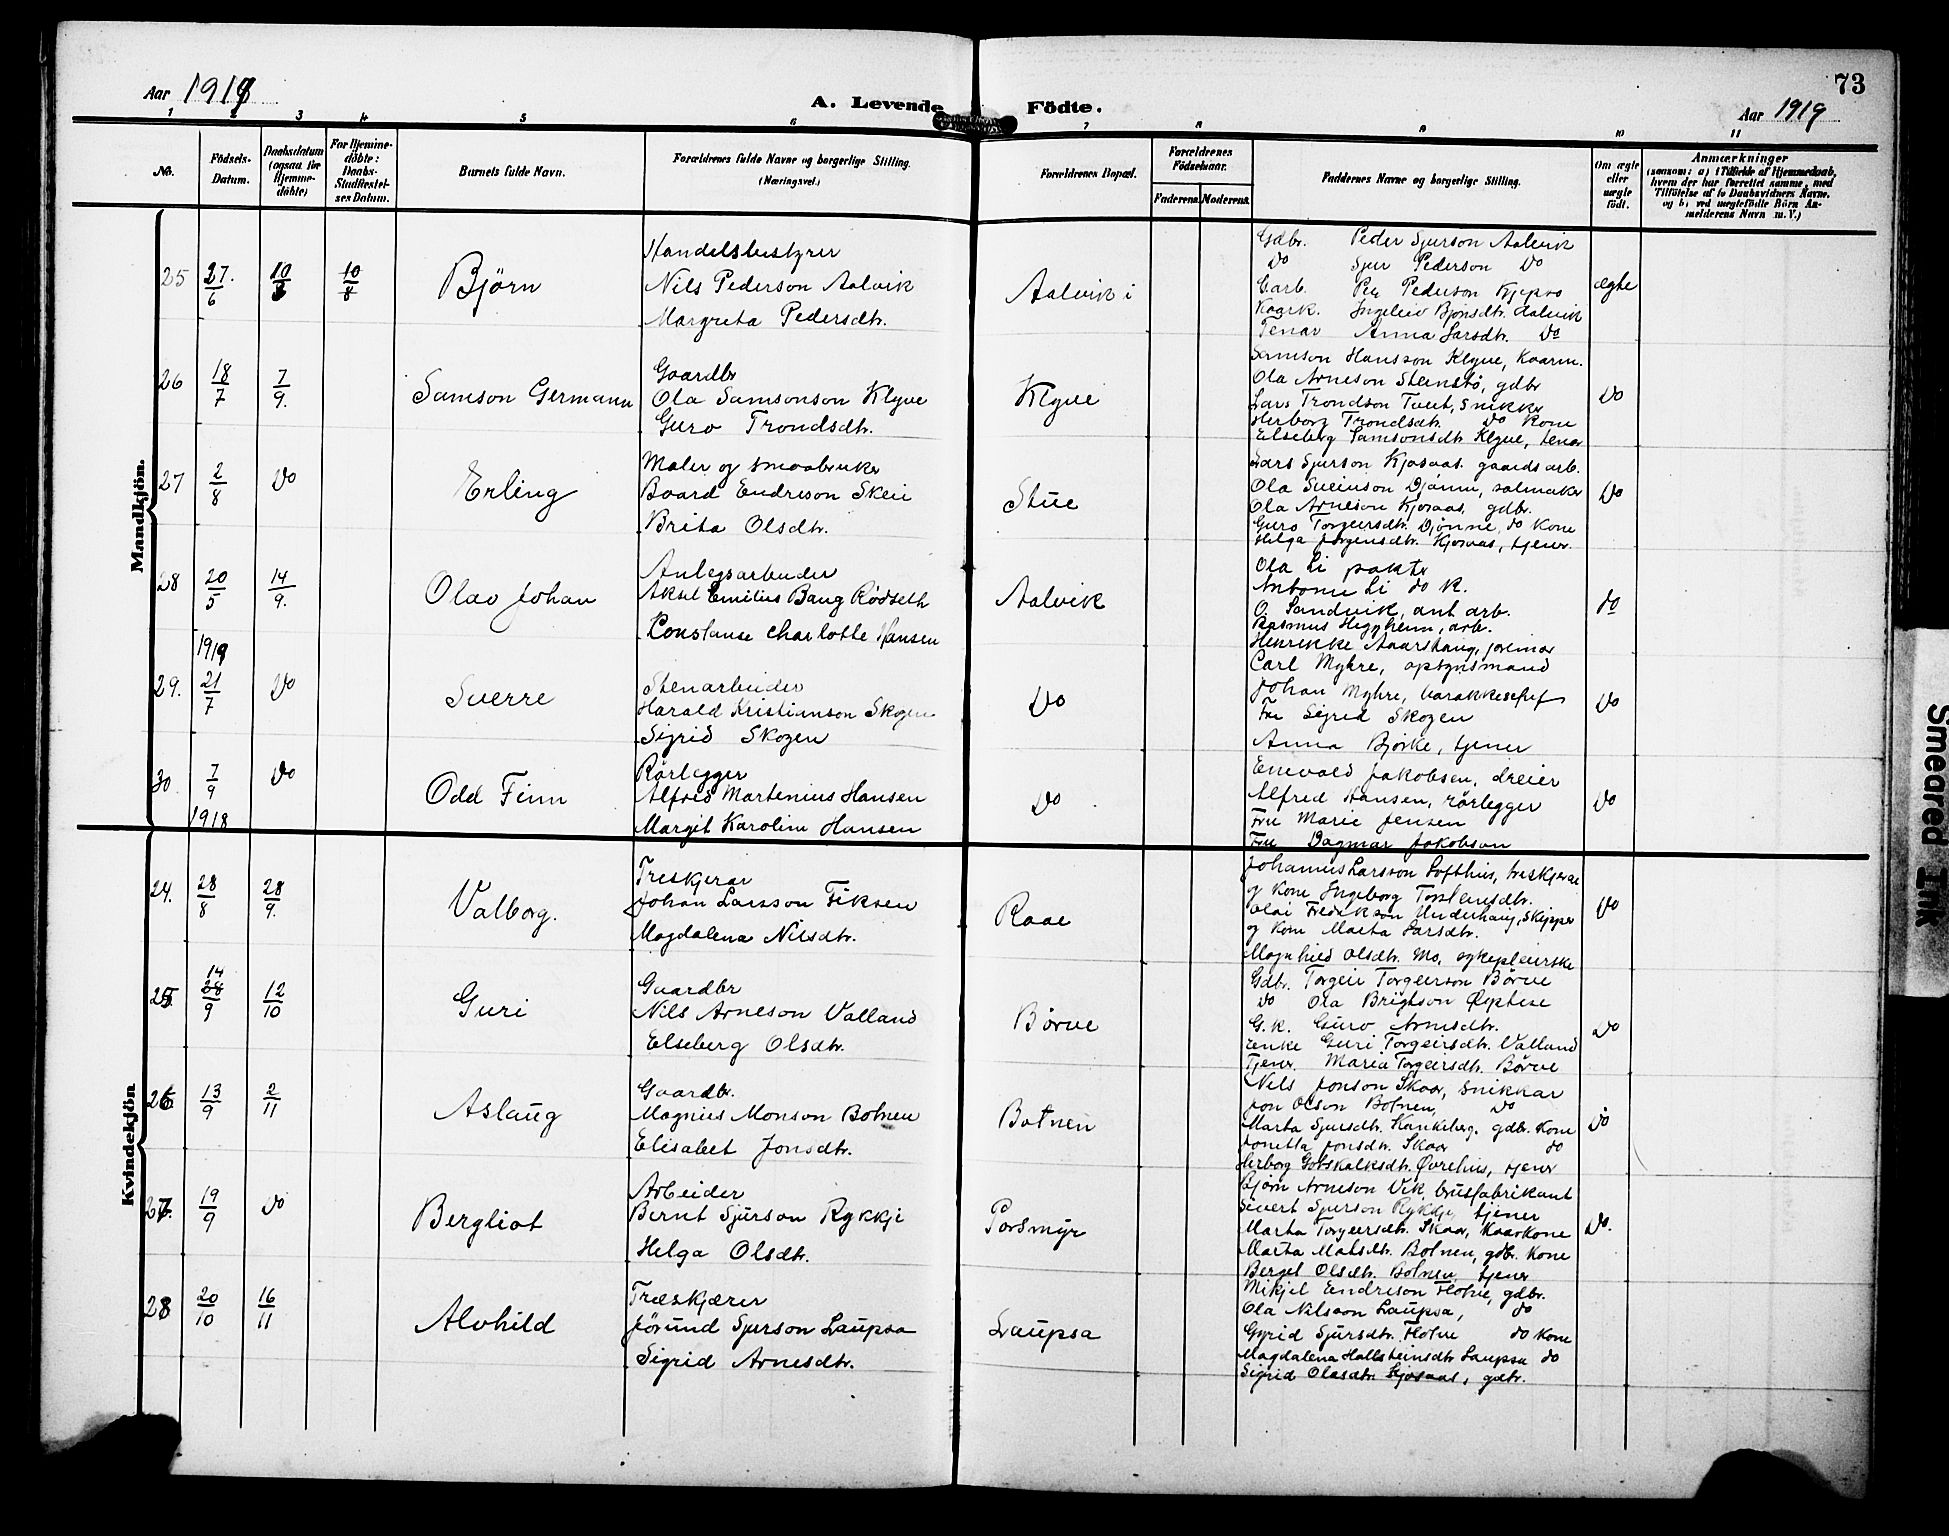 Aar 1919
A. Levende Födte.
73
Aar 1919
1 2 3 4 5 6 7 8 9 10 11
No.
Födsels-Datum.
Daabsdatum (ogsaa for Hjemme-döbte)
For Hjemme-döbte: Daabs-Stadfæstel-ses Datum.
Barnets fulde Navn.
Forældrenes fulde Navne og borgerlige Stilling.
(Næringsvei.)
Forældrenes Bopæl.
Forældrenes Födselsaar.
Faderens. Moderens.
Faddernes Navne og borgerlige Stilling.
Om ægte eller uægte födt.
Anmærkninger
(saasom: a) i Tilfælde af Hjemmedaab, hvem der har forrettet samme, med Tilföielse af to Daabsvidners Navne, og b) ved uægtefödte Börn Anmelderens Navn m. V.)
Mandkjön.
25 27/6 10/8 10/8 Björn
Handelsbestyrer
Nils Pederson Aalvik
Margreta Pedersdtr.
Aalvik i
Gdbr. Peder Sjurson Aalvik
Do Sjur Pederson Do
Garb. Per Pederson Kjepso
Kaark. Ingeleiv Bjonsdtr. Aalvik
Tenar Anna Larsdtr. Do
ægte
26 18/7 7/9. Samson Germann
Gaardbr
Ola Samsonson Klyve
Guro Trondsdtr.
Klyve
Samson Hansson Klyve, Kaarm.
Ola Arneson Steinstö, gdbr
Lars Trondson Tveit, Snikker
Herborg Trondsdtr. Do Kone
Elseberg Samsonsdtr. Klyve, tener
Do
27 2/8 Do Erling
Maler og smaabruker
Baard Endreson Skeie
Brita Olsdtr.
Stue
Lars Sjurson Kjosaas gaards arb.
Ola Sveinson Djönne, salmaker
Ola Arneson Kjosaas, gdbr.
Guro Torgeirsdtr. Djönne, do Kone
Helga Jörgensdtr. Kjosaas, tjener.
Do
28 20/5 14/9. Olav Johan
Anlegsarbeider
Aksel Emilius Bang Rödseth
Constanse Charlotte Hansen
Aalvik
Ola Li pakter
Antonie Li do K.
O. Sandvik, anl. arb.
Rasmus Heggheim, arb.
Henrikke Aaarshaug,
do
1919
29. 21/7 Do Sverre
Stenarbeider
Harald Kristianson Skogen
Sigrid Skogen
Do
Carl Myhre, opsynsmand
Johan Myhre, barakkeschef
Fru Sigrid Skogen
Anna Bjorke, tjener
Do
30. 7/9 Do Odd Finn
1918
Rörlegger
Alfred Martenius Hansen
Margit Karoline Hansen
Do
Enevald Jakobsen, dreier
Alfred Hansen, rörlegger
Fru Marie Jensen
Fru Dagmar Jakobson
Do
Kvindekjön
24. 28/8 28/9. Valborg.
Treskjerar
Johan Larsson Fiksen
Magdalena Nilsdtr.
Raae
Johannes Larsson Lofthus, treskjerar
og Kone Ingeborg Torsteinsdtr.
Olai Fredrikson Underhaug, Skipper
og Kone Marta Larsdtr.
Magnhild Olsdtr. Mo, sykepleierske
Do
25 14/9 12/10 Guri
Gaardbr
Nils Arneson Valland
Elseberg Olsdtr.
Börve
Gdbr. Torgeir Torgeirson Börve
Do Ola Brigtson
G.k. Guro Arnesdtr.
Enke Guri Torgeirsdtr. Valland
Tjener. Maria Torgeirsdtr. Börve
Do
26 13/9 2/11 Aslaug
Gaardbr.
Magnus Monson Botnen
Elisabet Jonsdtr.
Botnen
Nils Jonson Skaar, Snikkar
Jon Olson Botnen, Do
Marta Sjursdtr. Kankeberg. gdbr. Kone
Jonetta Jonsdtr. Skaar do
Herborg Gotskalksdtr. Övrehus, tjener
Do
27. 19/9 Do Bergliot
Arbeider
Bernt Sjurson Rykkje
Helga Olsdtr.
Porsmyr
Björn Arneson Vik, brusfabrikant
Sivert Sjurson Rykkje, tjener
Marta Torgeirsdtr. Skaar, Kaarkone
Marta Matsdtr. Botnen, gdbr. Kone
Berget Olsdtr. Botnen, tjener
Do.
28 20/10 16/11 Alvhild
Træskjærer
Jörund Sjurson Laupsa
Sigrid Arnesdtr.
Laupsa
Mikjel Eendreson Flotve, gdbr.
Ola Nilsson Laupsa, do
Gyrid Sjursdtr. Flotve do Kone
Magdalena Hallsteinsdtr Laupsa do
Sigrid Olasdtr Kjosaas, gdtr.
Smeared Ink